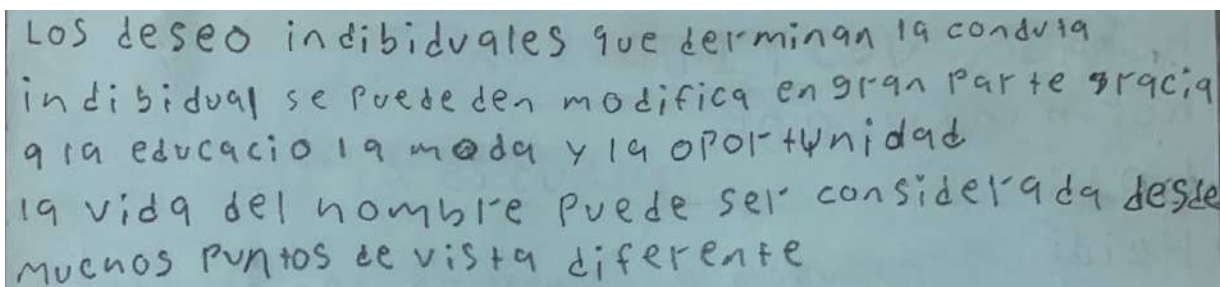 Los deseo indibiduales que derminan la conduta
indibidual se puede den modifica en gran parte gracia
a la educacio la moda y la oportunidad
la vida del hombre puede ser considerada desde
muchos puntos de vista diferente